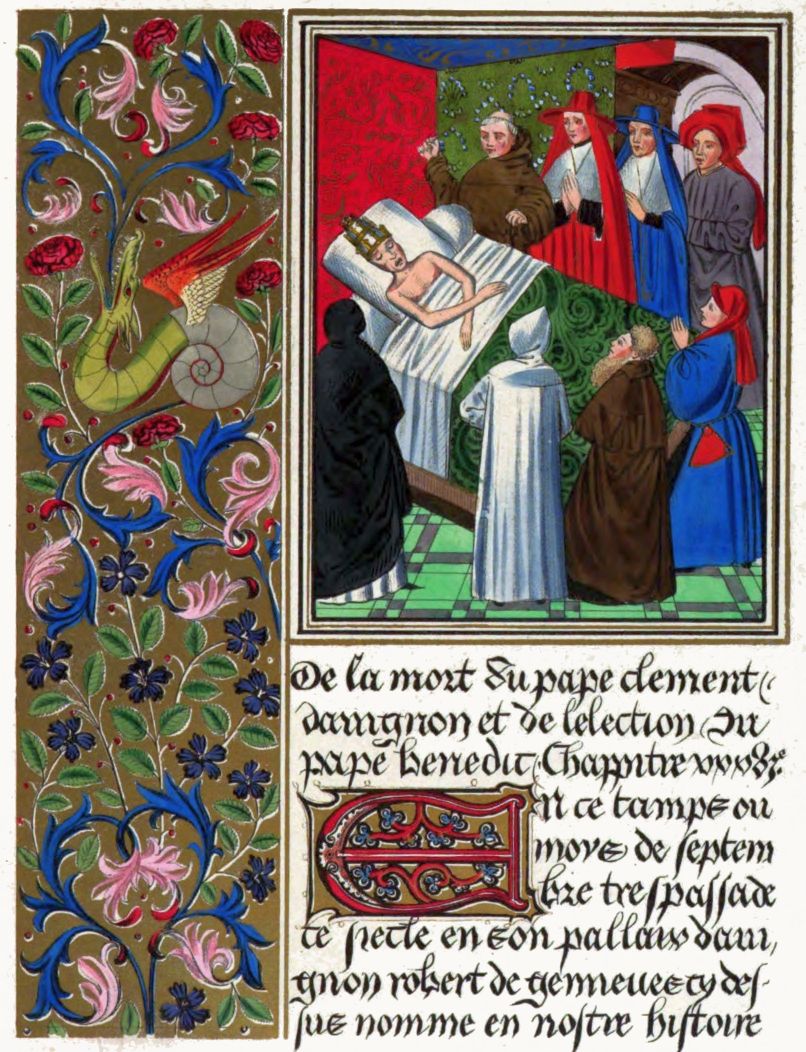 De la mort du pape clement
dauignon et de lelection du
pape benedic. Chappitre xxxvie.
En ce tamps ou
moys de septem
bre trespassa de
ce siecle en son pallais daui,
gnon robert de genneues cy des-
sus nomme en nostre histoire